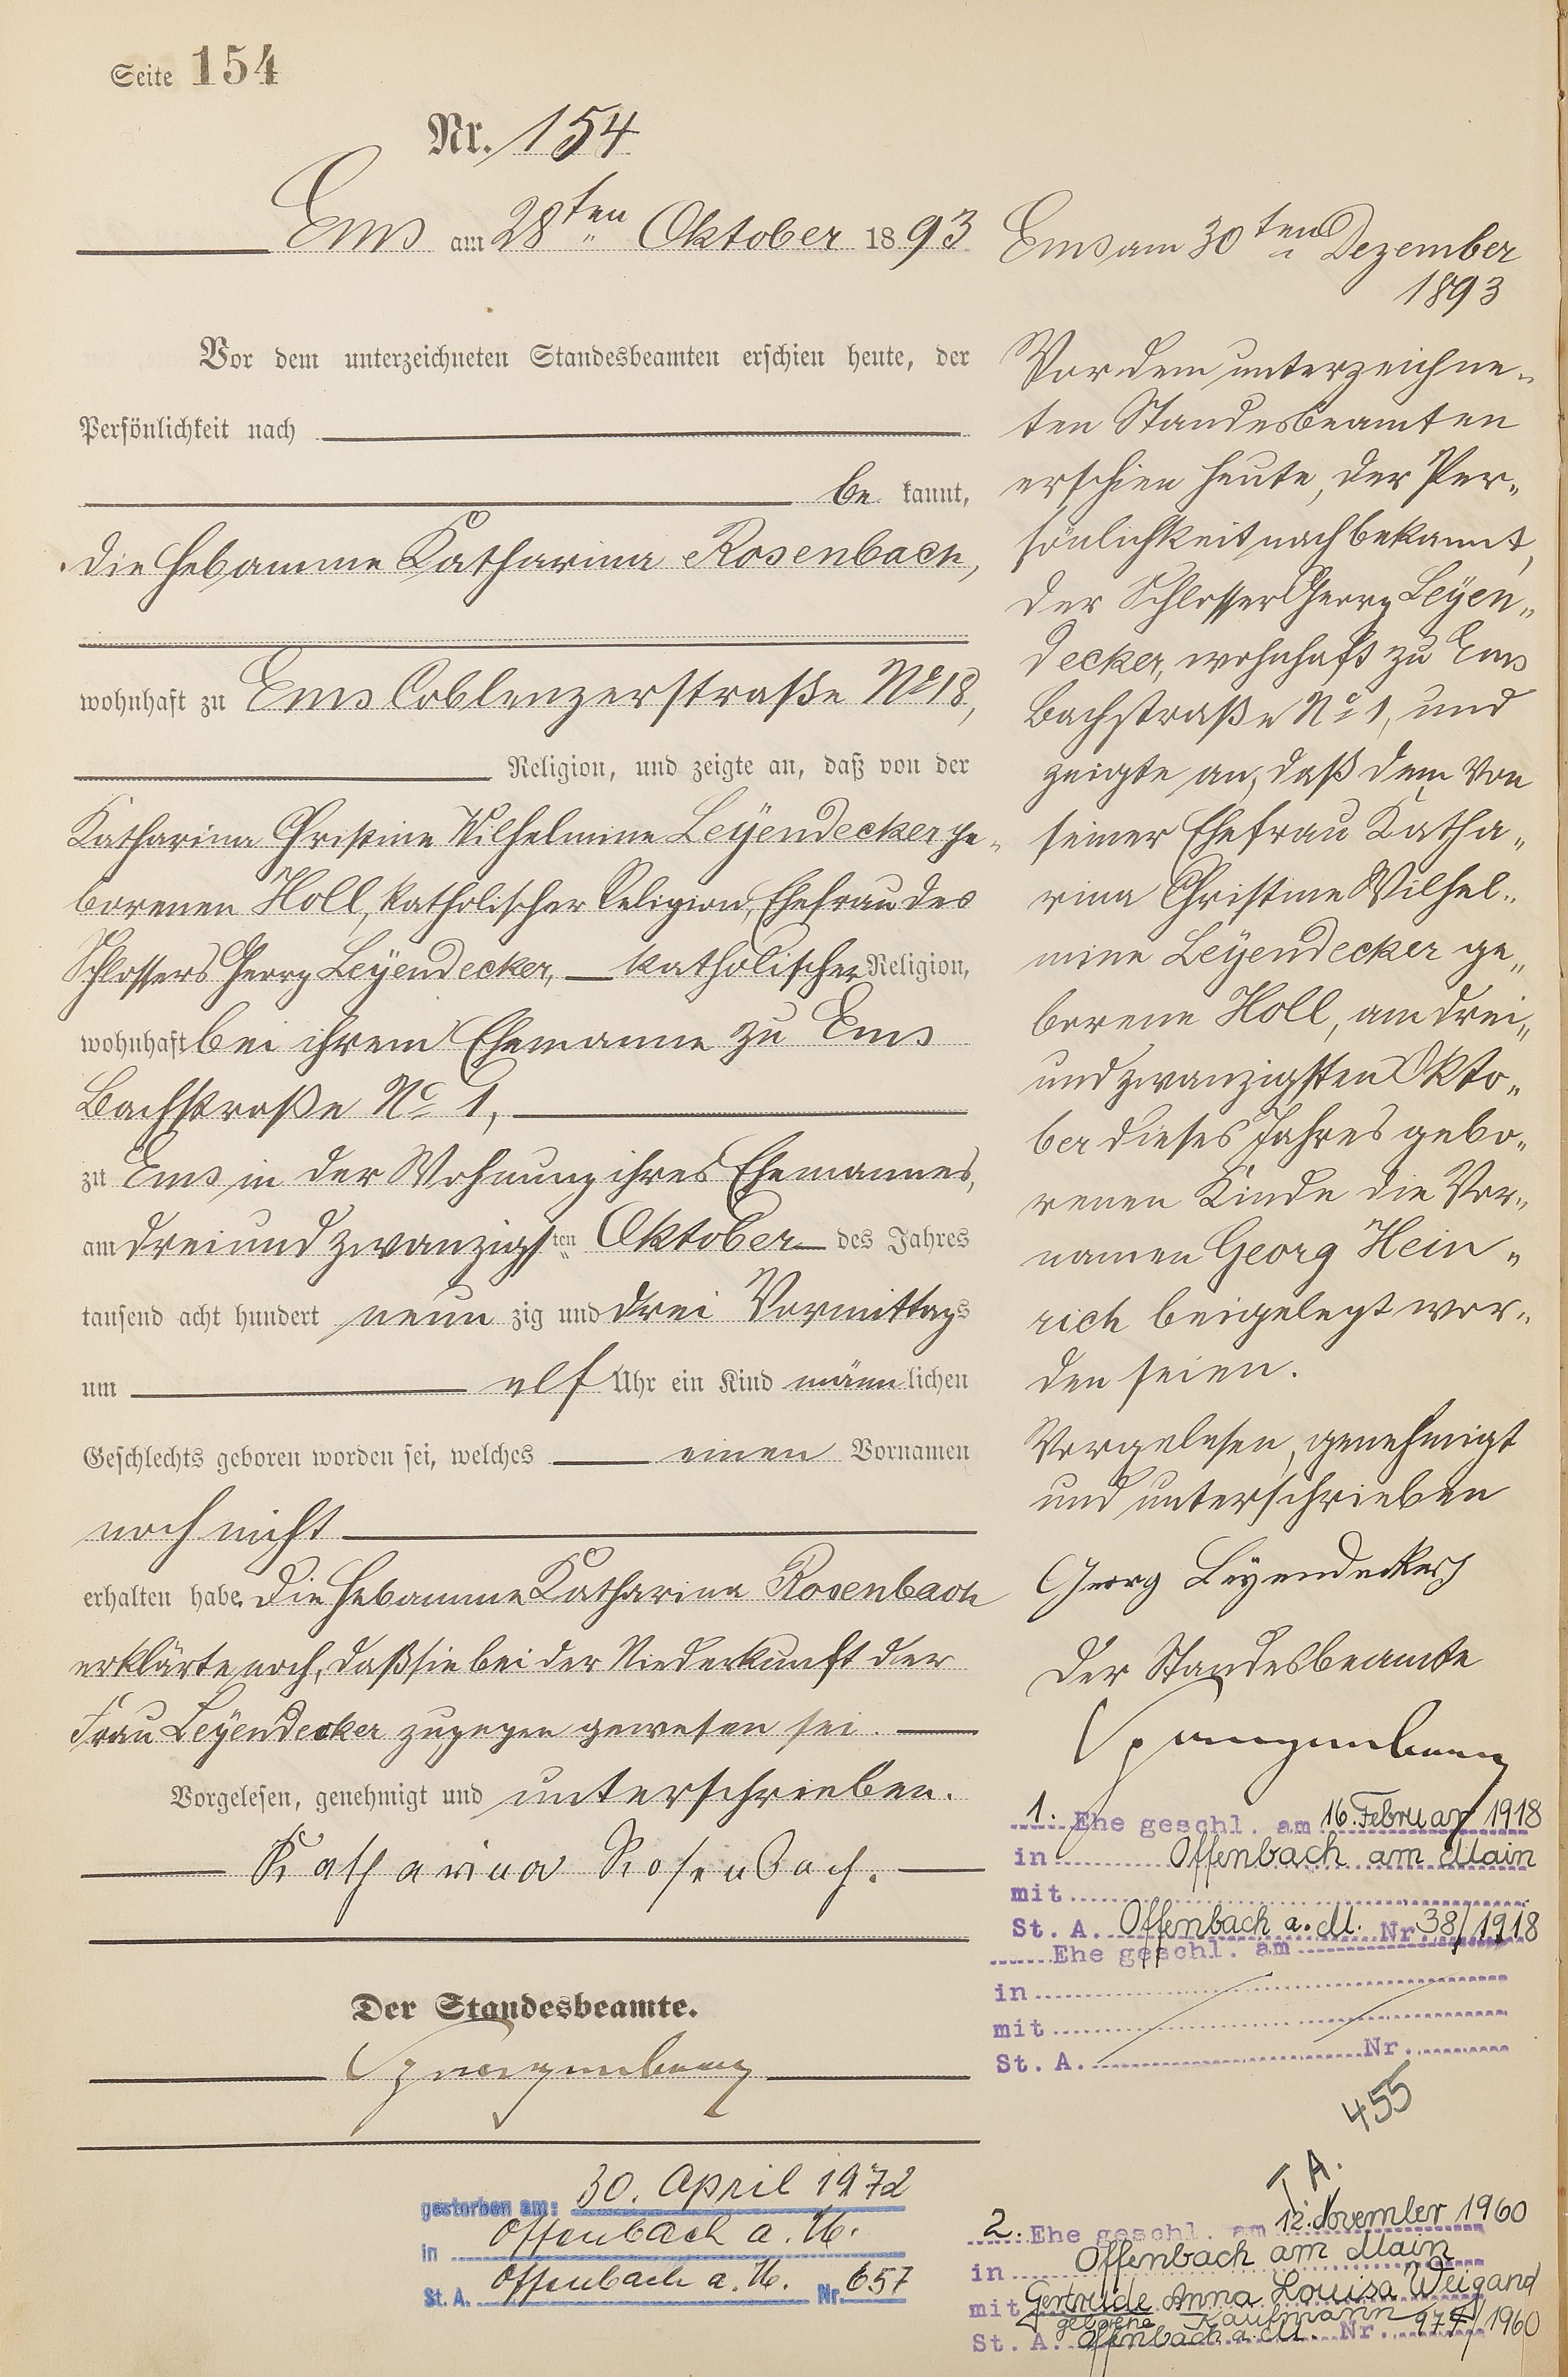 Seite 154
Nr. 154
Ems am 28ten Oktober 1893
Vor dem unterzeichneten Standesbeamten erschien heute, der
Persönlichkeit nach
be kannt,
die Hebamme Katharina Rosenbach,
wohnhaft zu Ems Coblenzerstraße No 18,
Religion, und zeigte an, daß von der
Katharina Christine Wilhelmine Leÿendecker ge„
borenen Holl, katholischer Religion, Ehefrau des
Schlossers Georg Leÿendecker, katholischer Religion,
wohnhaft bei ihrem Ehemanne zu Ems
Bachstraße No 1,
zu Ems in der Wohnung ihres Ehemannes,
am dreiundzwanzigsten Oktober des Jahres
tausend acht hundert neun zig und drei Vormittags
um elf Uhr ein Kind männlichen
Geschlechts geboren worden sei, welches einen Vornamen
noch nicht
erhalten habe. Die Hebamme Katharina Rosenbach
erklärte noch, daß sie bei der Niederkunft der
Frau Leÿendecker zugegen gewesen sei.
Vorgelesen, genehmigt und unterschrieben.
Katharina Rosenbach.
Der Standesbeamte.
Spangenberg
gestorben am: 30. April 1972
in Offenbach a. M.
St. A. Offenbach a. M. Nr. 657
Ems am 30ten Dezember
1893
Vor dem unterzeichne„
ten Standesbeamten
erschien heute, der Per„
sönlichkeit nach bekannt,
der Schlosser Georg Leÿen„
decker, wohnhaft zu Ems
Bachstraße No 1, und
zeigte an, daß dem von
seiner Ehefrau Katha„
rina Christine Wilhel„
mine Leÿendecker ge„
borene Holl, am drei„
undzwanzigsten Okto„
ber dieses Jahres gebo„
renen Kinde die Vor„
namen Georg Hein„
rich beigelegt wor„
den seien.
Vorgelesen, genehmigt
und unterschrieben
Georg Leyendecker
Der Standesbeamte
Spangenberg
1. Ehe geschl. am 16. Februar 1918
in Offenbach am Main
mit
St. A. Offenbach a. M. Nr. 38/1918
Ehe geschl. am
in
mit
St. A. Nr.
T A. 455
2. Ehe geschl. am 12. November 1960
in Offenbach am Main
mit Gertrude Anna Louisa Weigand
geborene Kaufmann
St. A. Offenbach a. M. Nr. 974/1960